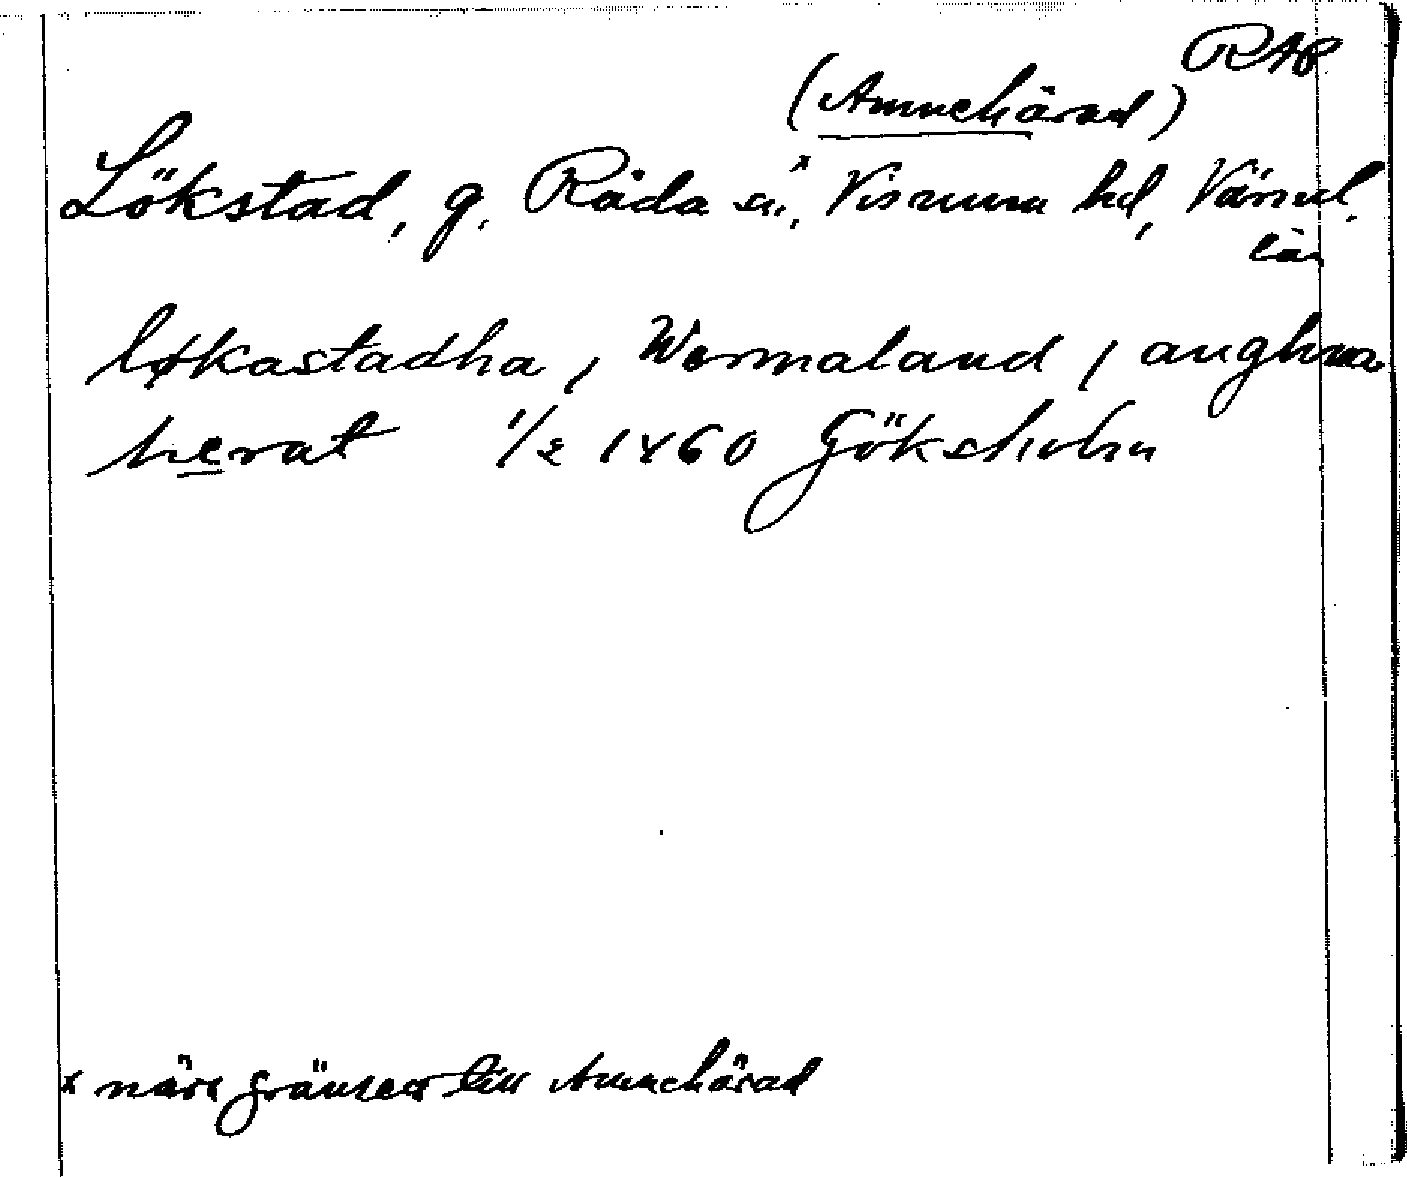 RAP
(Amnehärad)
Lökstad, g. Råda sn,ˣ Visnums hd, Värml.
län
løkastadha, Wermaland, anghna
herat 1/2 1460 Göksholm
x nära gränsen till Amnehärad